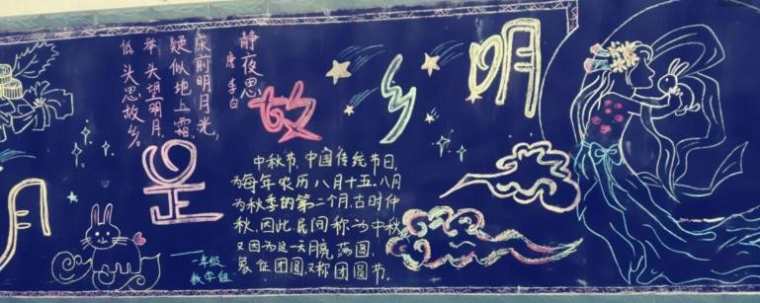 月是故乡明
静夜思
唐 李白
床前明月光,
疑似地上霜
举头望明月
低头思故乡。
中秋节,中国传统节日,
为每年农历八月十五.八月
为秋季的第二个月,古时仲
秋,因此民间称为中秋
又因为这一天月亮满圆,
象征团圆,又称团圆节.
一年级
数学组